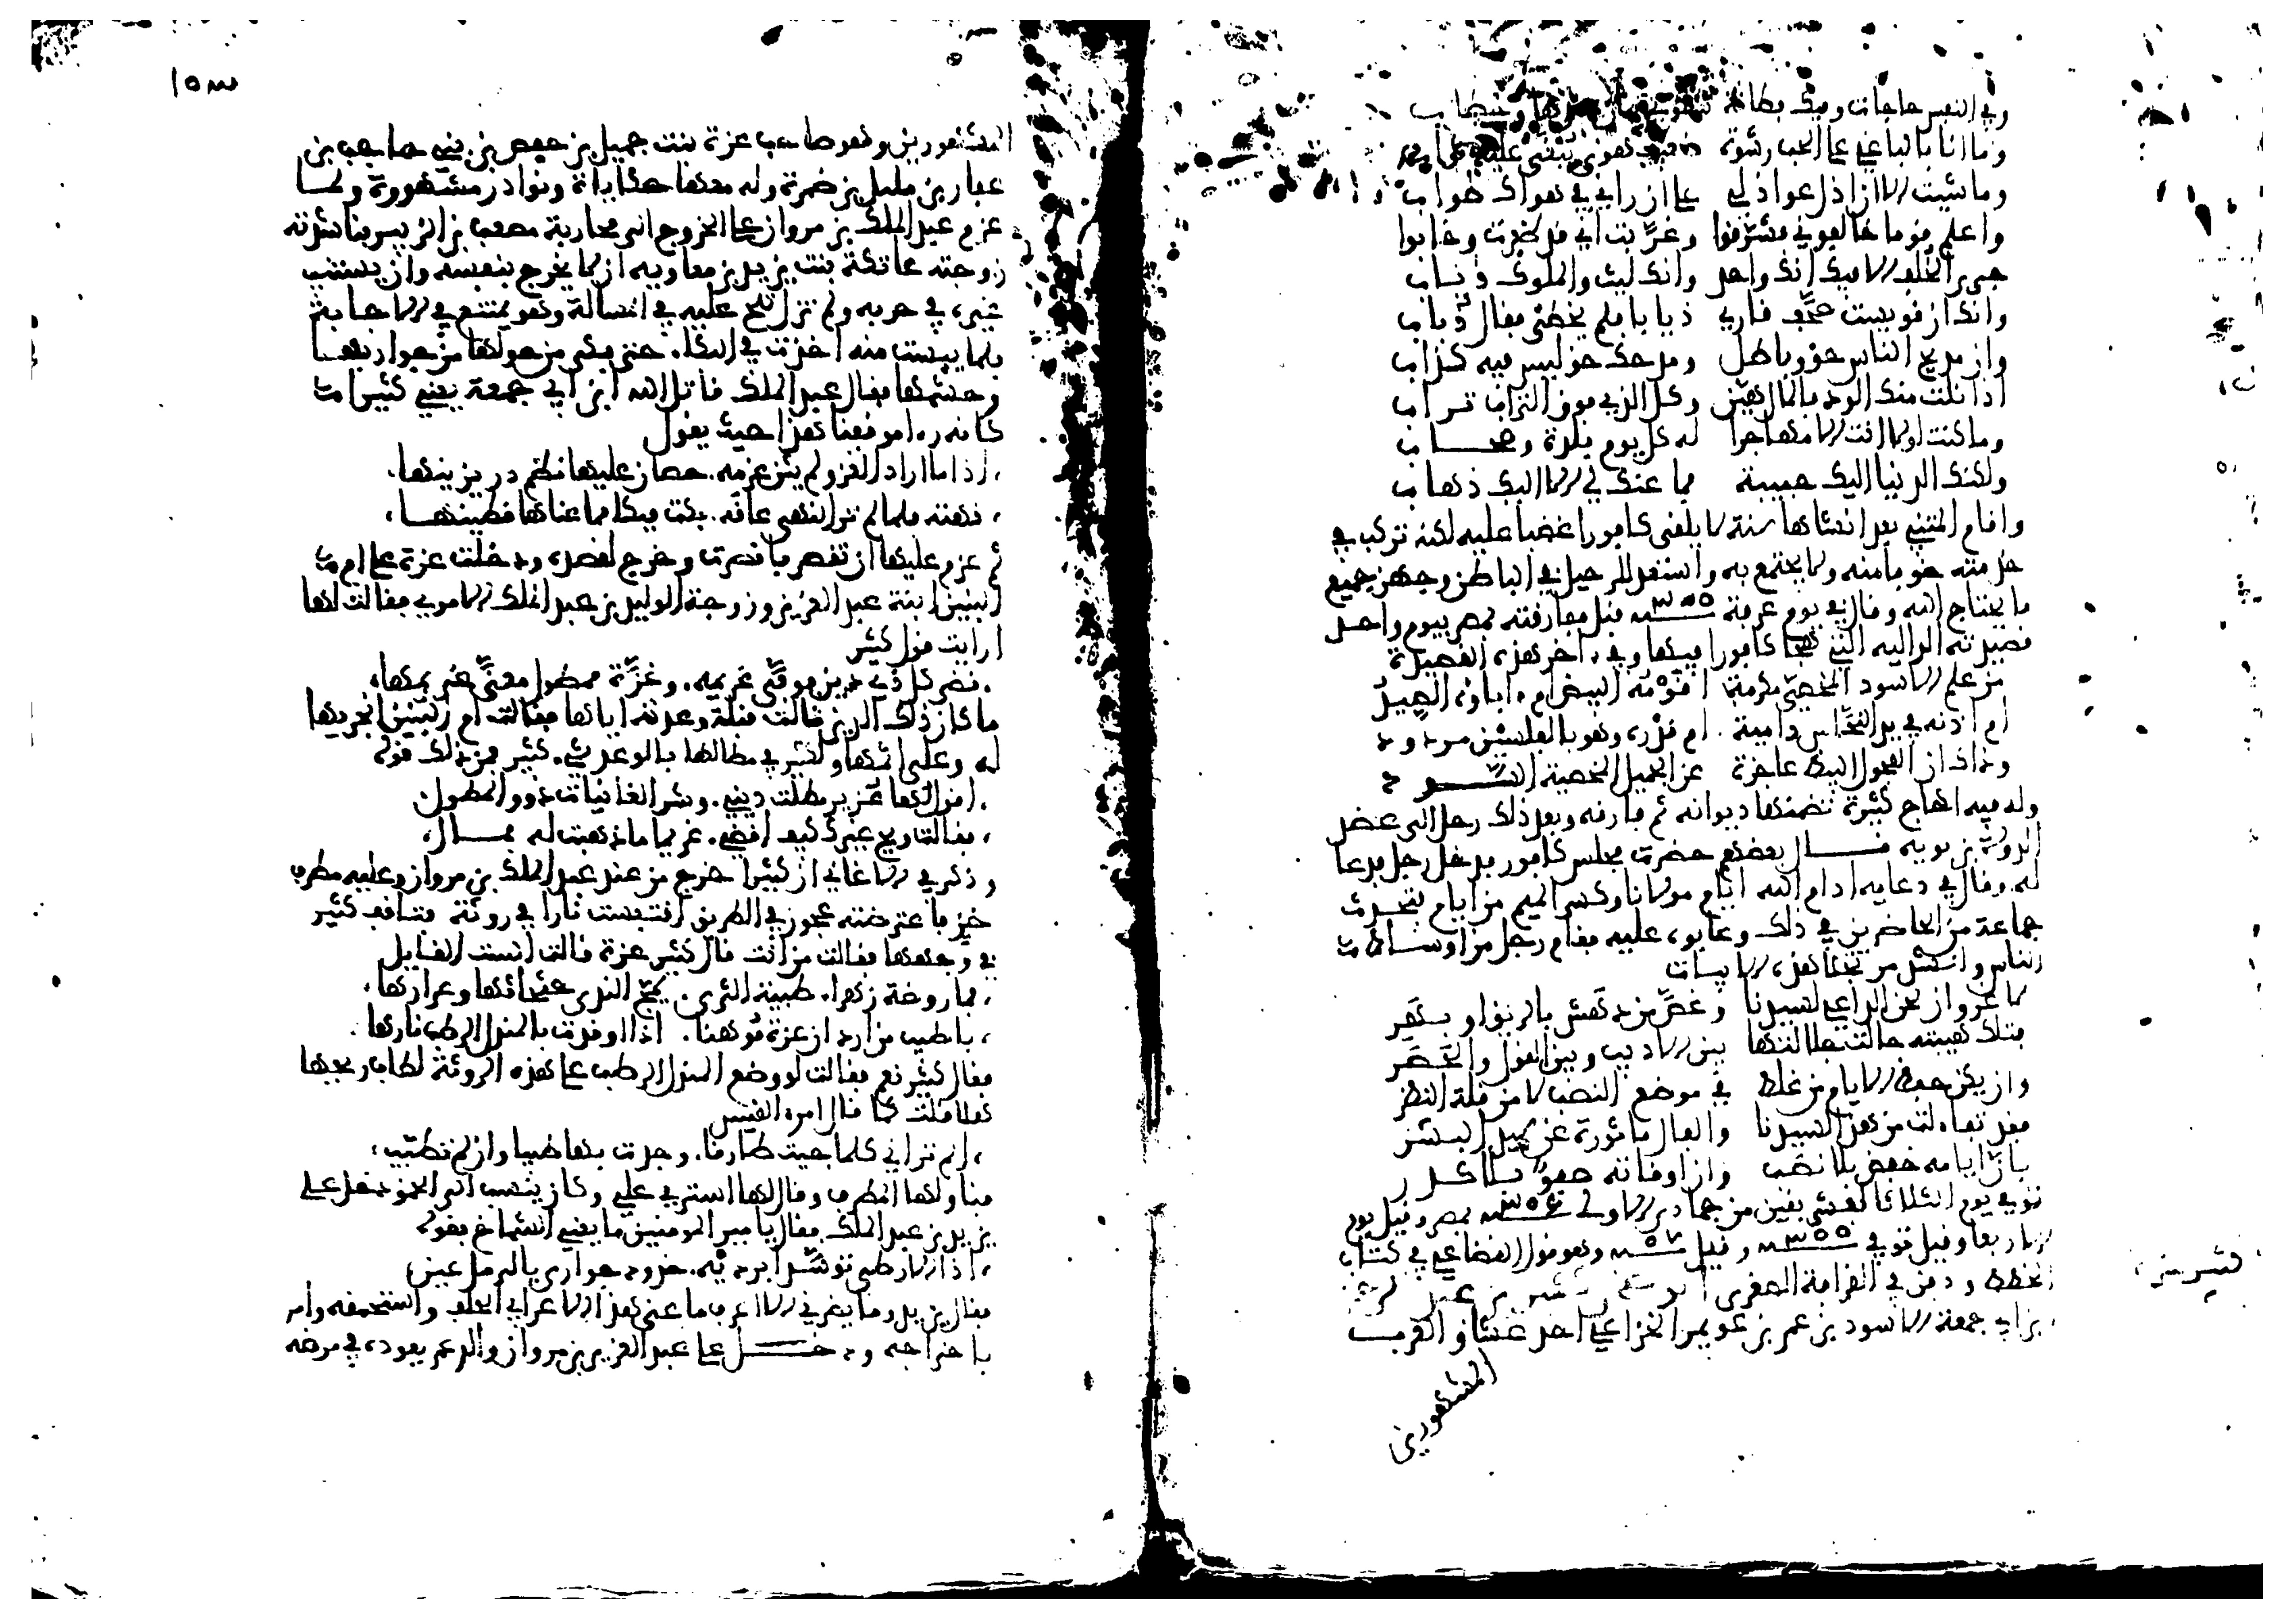 وفي النفس حاجات وفيك فطانة سكوتي بيان عندها وخطاب
وما انا بالباغي على الحب رشوة ضعيف هوى يبغى عليه ثواب
وما شيت الا ان اذل عواذلي على ان رايي في هواك صواب
واعلم قوما خالفوني فشرقوا وغربت اني قد ظفرت وخابوا
جرى الخلف الا فيك انك واحد وانك ليث والملوك ذياب
وانك ان قويست صحف قاري ذيابا فلم يخطئ فقال ذباب
وان مديح الناس حق وباطل ومدحك حق ليس فيه كذاب
اذا نلت منك الود فالمال هين وكل الذي فوق التراب تراب
وما كنت لولا انت الا مهاجرا له كل يوم بلدة وصحاب
ولكنك الدنيا الي حبيبة فما عنك لي الا اليك ذهاب
واقام المتنبي بعد انشادها سنة لا يلقى كافورا غضبا عليه لكنه تركب في
خدمته خوفا منه ولا يجتمع به واستعد للرحيل في الباطن وجهز جميع
ما يحتاج اليه وقال في يوم عرفة سنة ٣٥٠ قبل مفارقته لمصر بيوم واحد
قصيدته الدالية التي هجا كافورا فيها وفي ءاخر هذه القصيدة
من علم الاسود المخصي مكرمة اقومه البيض ام ءاباوه الصيد
ام اذنه في يد النخاس دامية ام قدره وهو بالفلسين مردود
وذاك ان الفحول البيض عاجزة عن الجميل فكيف الخصية السود
وله فيه اهاج كثيرة تضمنها ديوانه ثم فارقه وبعد ذلك رحل الى عضد
الدولة بن بويه قال بعضهم حضرت مجلس كافور فدخل رجل فدعا
له وقال في دعايه ادام الله ايام مولانا وكسر الميم من ايام فتحدث
جماعة من الحاضرين في ذلك وعابوه عليه فقام رجل من اوساط
الناس وانشد مرتجلا هذه الابيات
لا غرو ان لحن الداعي لسيدنا وغص من دهش بالريق او بهر
فتلك هيبته حالت جلالتها بين الاديب وبين القول والحصر
وان يكن خفض الايام من غلط في موضع النصب لا من قلة النظر
فقد تفاءلت من هذا لسيدنا والفال ماثورة عن سيد البشر
بان ايامه خفض بلا نصب وان اوقاته صفو بلا كدر
توفي يوم الثلاثا لعشر بقين من جمادى الاولى سنة ٣٥٦ بمصر وقيل يوم
الاربعا وقيل توفي سنة ٣٥٥ وقيل سنة ٥٧ وهو قول القضاعي في كتاب
الخطط ودفن في القرافة الصغرى ابو صخر كثير بن عبد الرحمن
بن ابي جمعة الاسود بن عمر بن عويمر الخزاعي احد عشاق العرب
المشهورين
كثير عزة
المشهورين وهو صاحب عزة بنت جميل بن حفص بن بني حاجب بن
غفار بن مليل بن ضمرة وله معها حكايات ونوادر مشهورة ولما
عزم عبد الملك بن مروان على الخروج الى محاربة مصعب بن الزبير ناشدته
زوجته عاتكة بنت يزيد بن معاوية ان لا يخرج بنفسه وان يستنيب
غيره في حربه ولم تزل تلح عليه في المسالة وهو يمتنع في الاجابة
فلما ييست منه اخذت في البكاء حتى بكى من حولها من جواريها
وحشمها فقال عبد الملك قاتل الله ابن ابي جمعة يعني كثيرا
كانه رءا موقفنا هذا حيث يقول
اذا ما اراد الغزو لم يثن عزمه حصان عليها نظم در يزينها
نهته فلما لم تر النهي عاقه بكت فبكا مما عناها قطينها
ثم عزم عليها ان تقصر فاقصرت وخرج لقصده ودخلت عزة على ام
البنين ابنة عبد العزيز وزوجة الوليد بن عبد الملك الاموي فقالت لها
ارايت قول كثير
قضى كل ذي دين فوفى غريمه وعزة ممطول معنى غريمها
ما كان ذلك الدين قالت قبلة وعدته اياها فقالت ام البنين انجزيها
له وعلي اثمها ولكثير في مطالها بالوعد شي كثير فمن ذلك قوله
اقول لها عزيز مطلت ديني وشر الغانيات ذوو المطول
فقالت ويح غيرك كيف اقضي غريما ما ذهبت له بمال
وذكر في الاغاني ان كثيرا خرج من عند عبد الملك بن مروان وعليه مطرف
خز فاعترضته عجوز في الطريق اقتبست نارا في روثة فتافف كثير
في وجهها فقالت من انت قال كثير عزة قالت الست القايل
فما روضة زهراء طيبة الثرى يمج الندى جثجاثها وعرارها
باطيب من اردان عزة موهنا اذا اوقدت بالمندل الرطب نارها
فقال كثير نعم فقالت لو وضع المندل الرطب على هذه الروثة لطاب ريحها
هلا قلت كما قال امرء القيس
الم تراني كلما جيت طارقا وجدت بها طيبا وان لم تطيب
فناولها المطرف وقال لها استري علي وكان ينسب الى الحمق دخل على
يزيد بن عبد الملك فقال يا امير المومنين ما يعني الشماخ بقوله
اذا الارطى توسد ابرديه خدود جوازي بالرمل عين
فقال يزيد وما يضرني الا اعرف ما عنى هذا الاعرابي الجلف واستحمقه وامر
باخراجه ودخل على عبد العزيز بن مروان والد عمر يعوده في مرضه